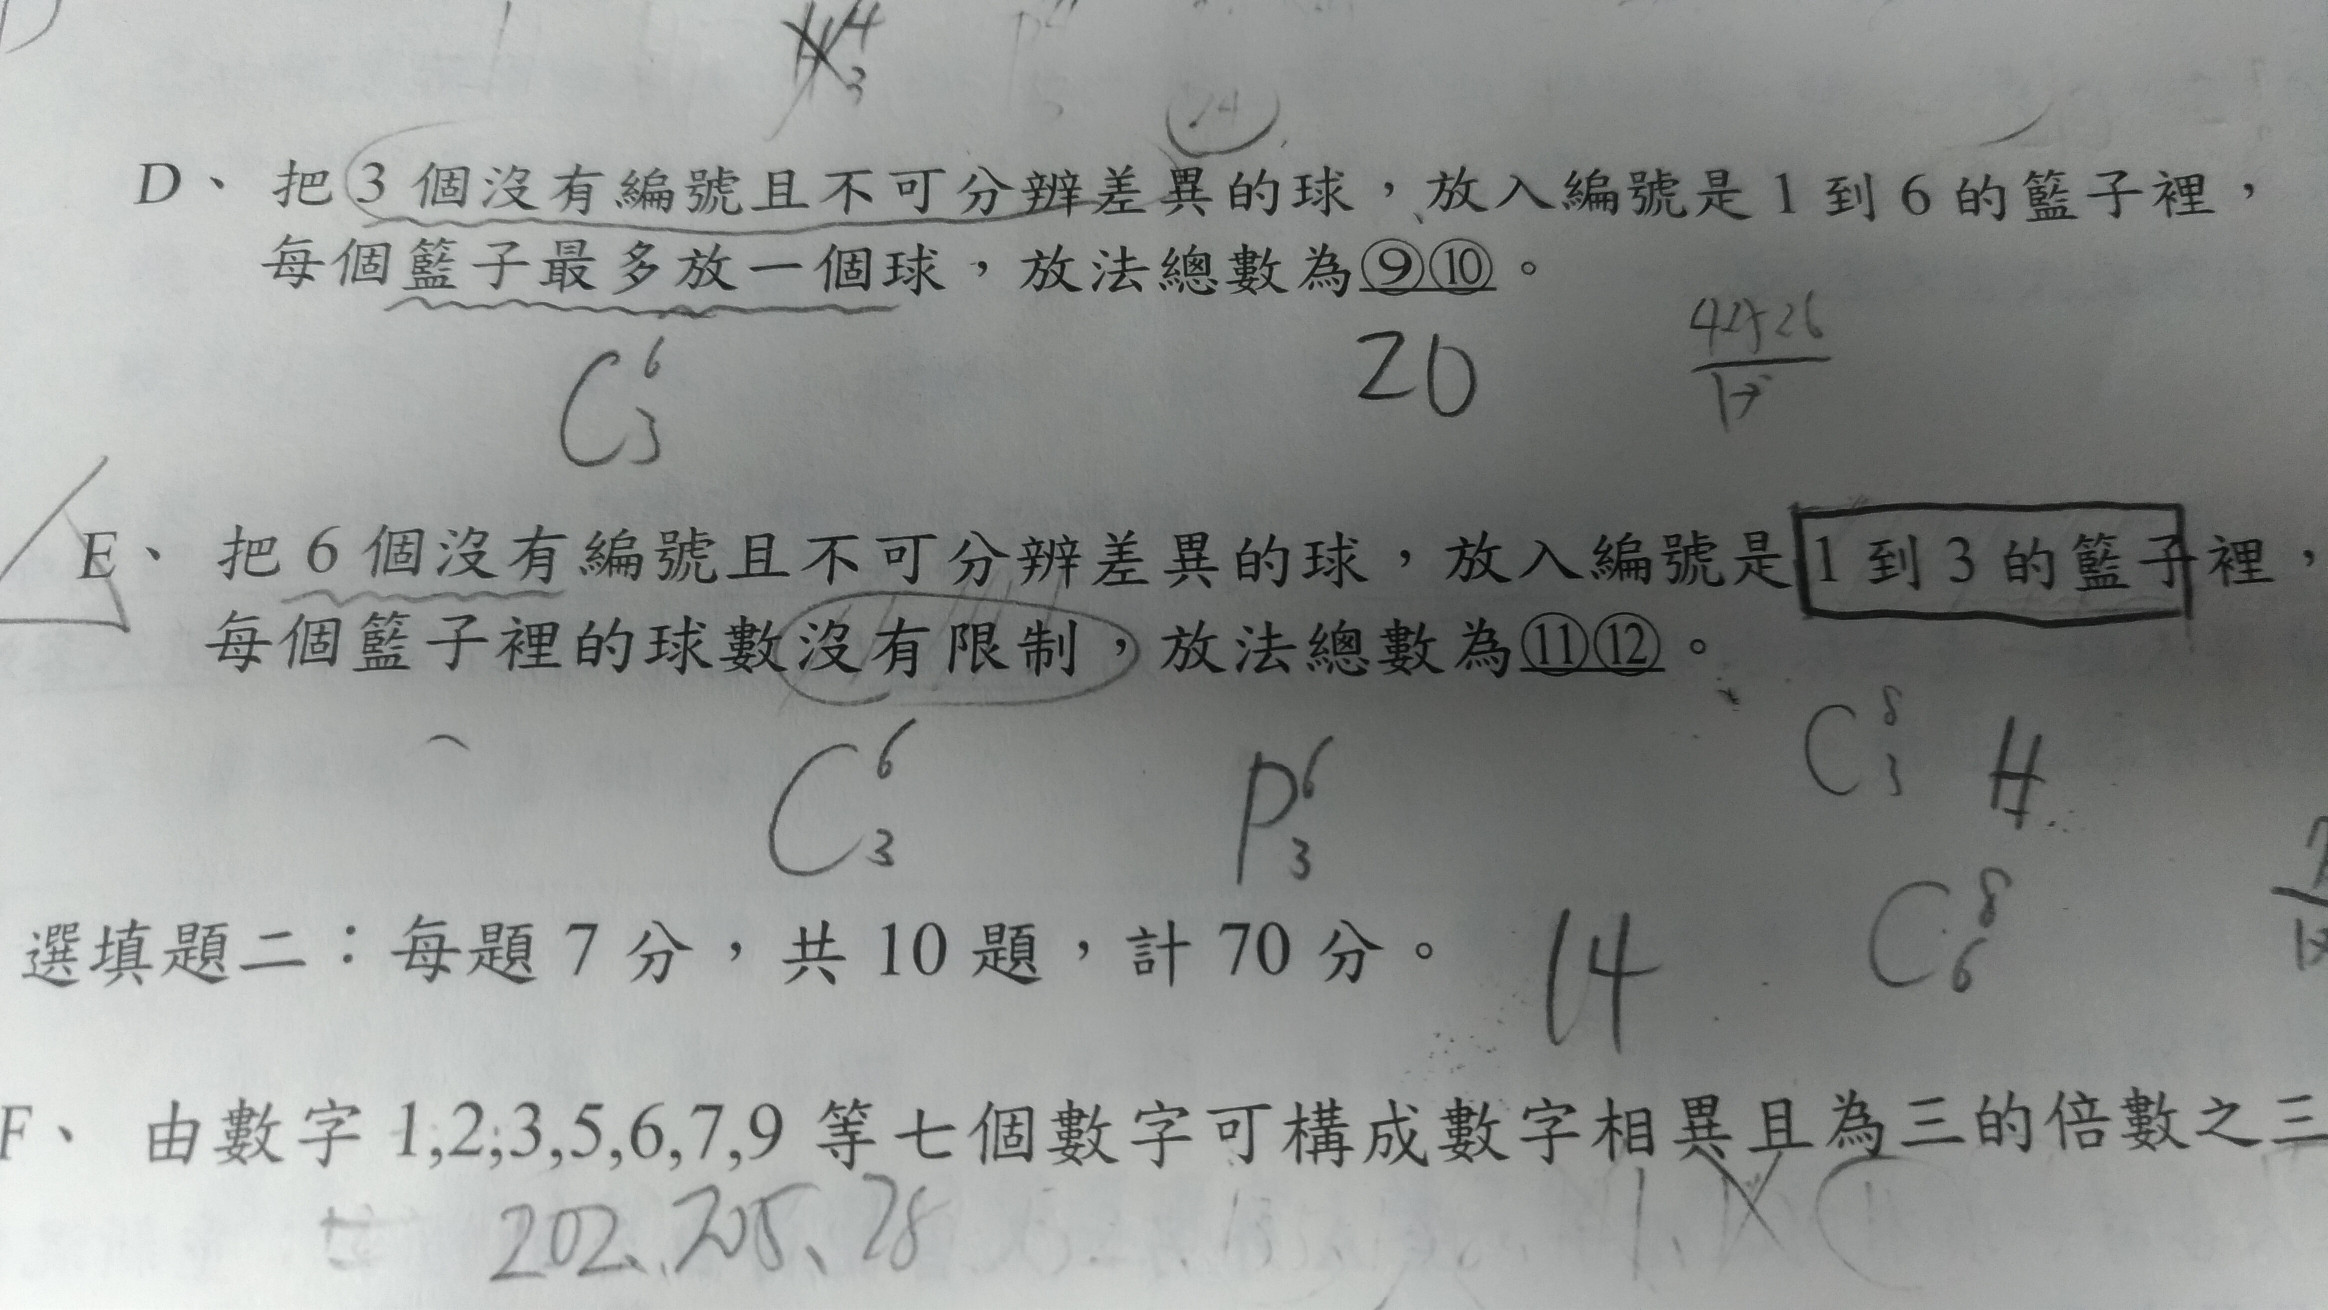 H 4 3
24
D、 把 3 個沒有編號且不可分辨差異的球，放入編號是 1 到 6 的籃子裡，
每個籃子最多放一個球，放法總數為⑨⑩。
C 6 3
20
E、 把 6 個沒有編號且不可分辨差異的球，放入編號是 1 到 3 的籃子裡，
每個籃子裡的球數沒有限制，放法總數為⑪⑫。
C 8 3 H
C 6 3 P 6 3
C 8 6
選填題二：每題 7 分，共 10 題，計 70 分。
14
F、 由數字 1,2,3,5,6,7,9 等七個數字可構成數字相異且為三的倍數之三
202、205、28